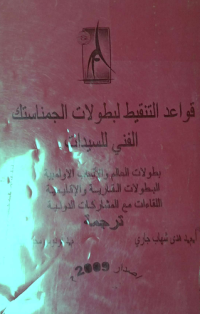 قواعد التنقيط لبطولات الجمناستك
الفني للسيدات
بطولات العالم والألعاب الاولمبية
البطولات القارية والاقليمية
اللقاءات مع المشاركات الدولية
ترجمة
اصدار 2009م